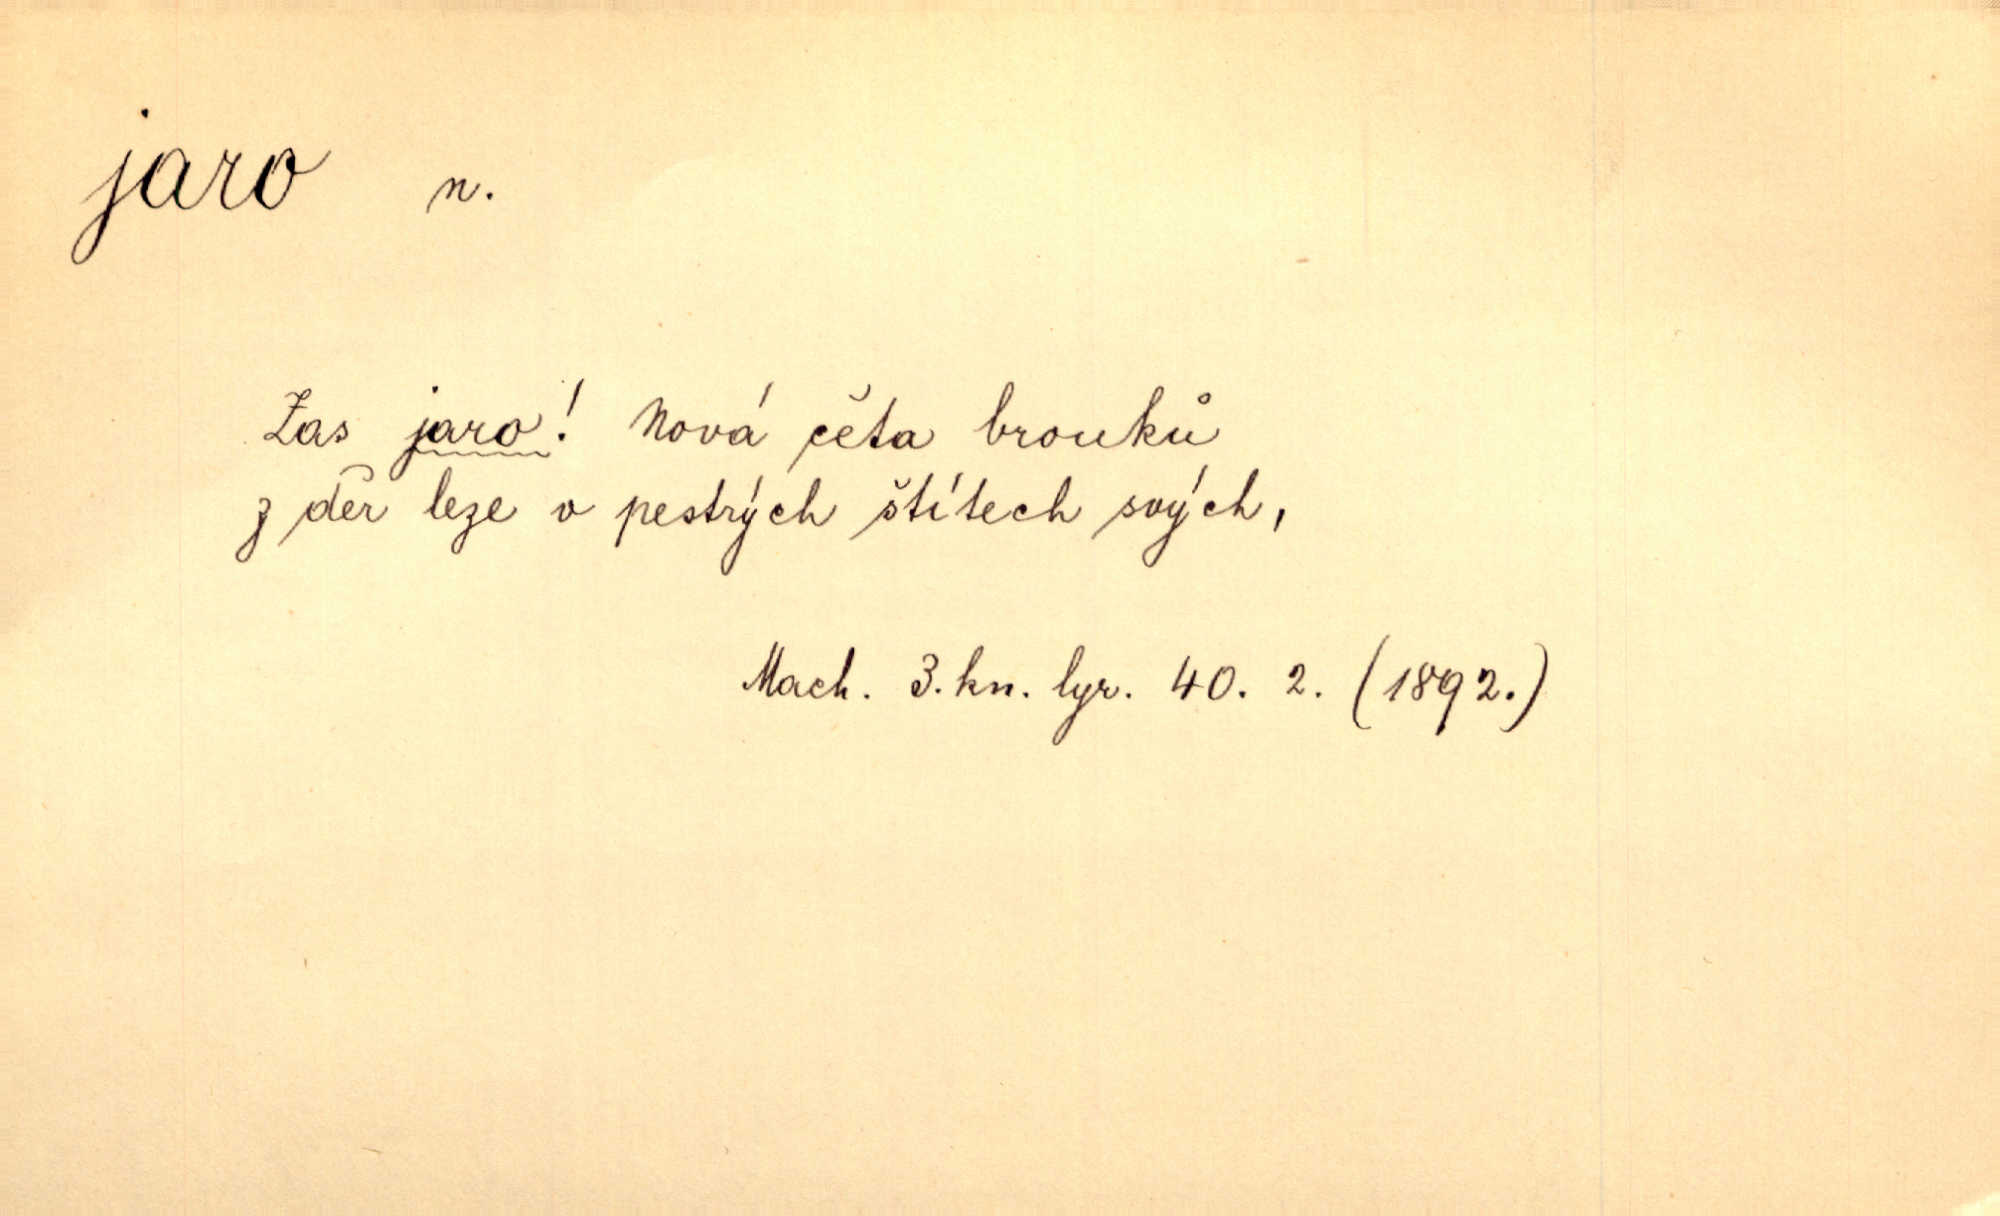 jaro n.
Zas jaro! Nová četa brouků
z děr leze v pestrých štítech svých,
Mach. 3. kn. lyr. 40. 2. (1892.)